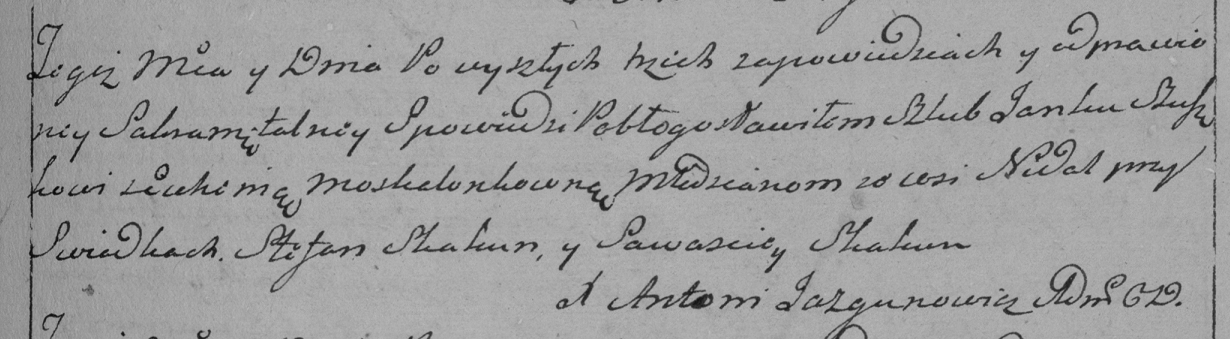 Tegiż Mca y Dnia Po wyszłych trzech zapowiedziach y odprawio
ney Sakramętalney Spowiedzi Pobłogosławiłem Szlub Janku
kowi z moskalonkowną Młodzianom ze wsi Nidal przy
Swiadkach. Stefan Skakun, y Sawasciey Skakun
X Antoni Jazgunowicz